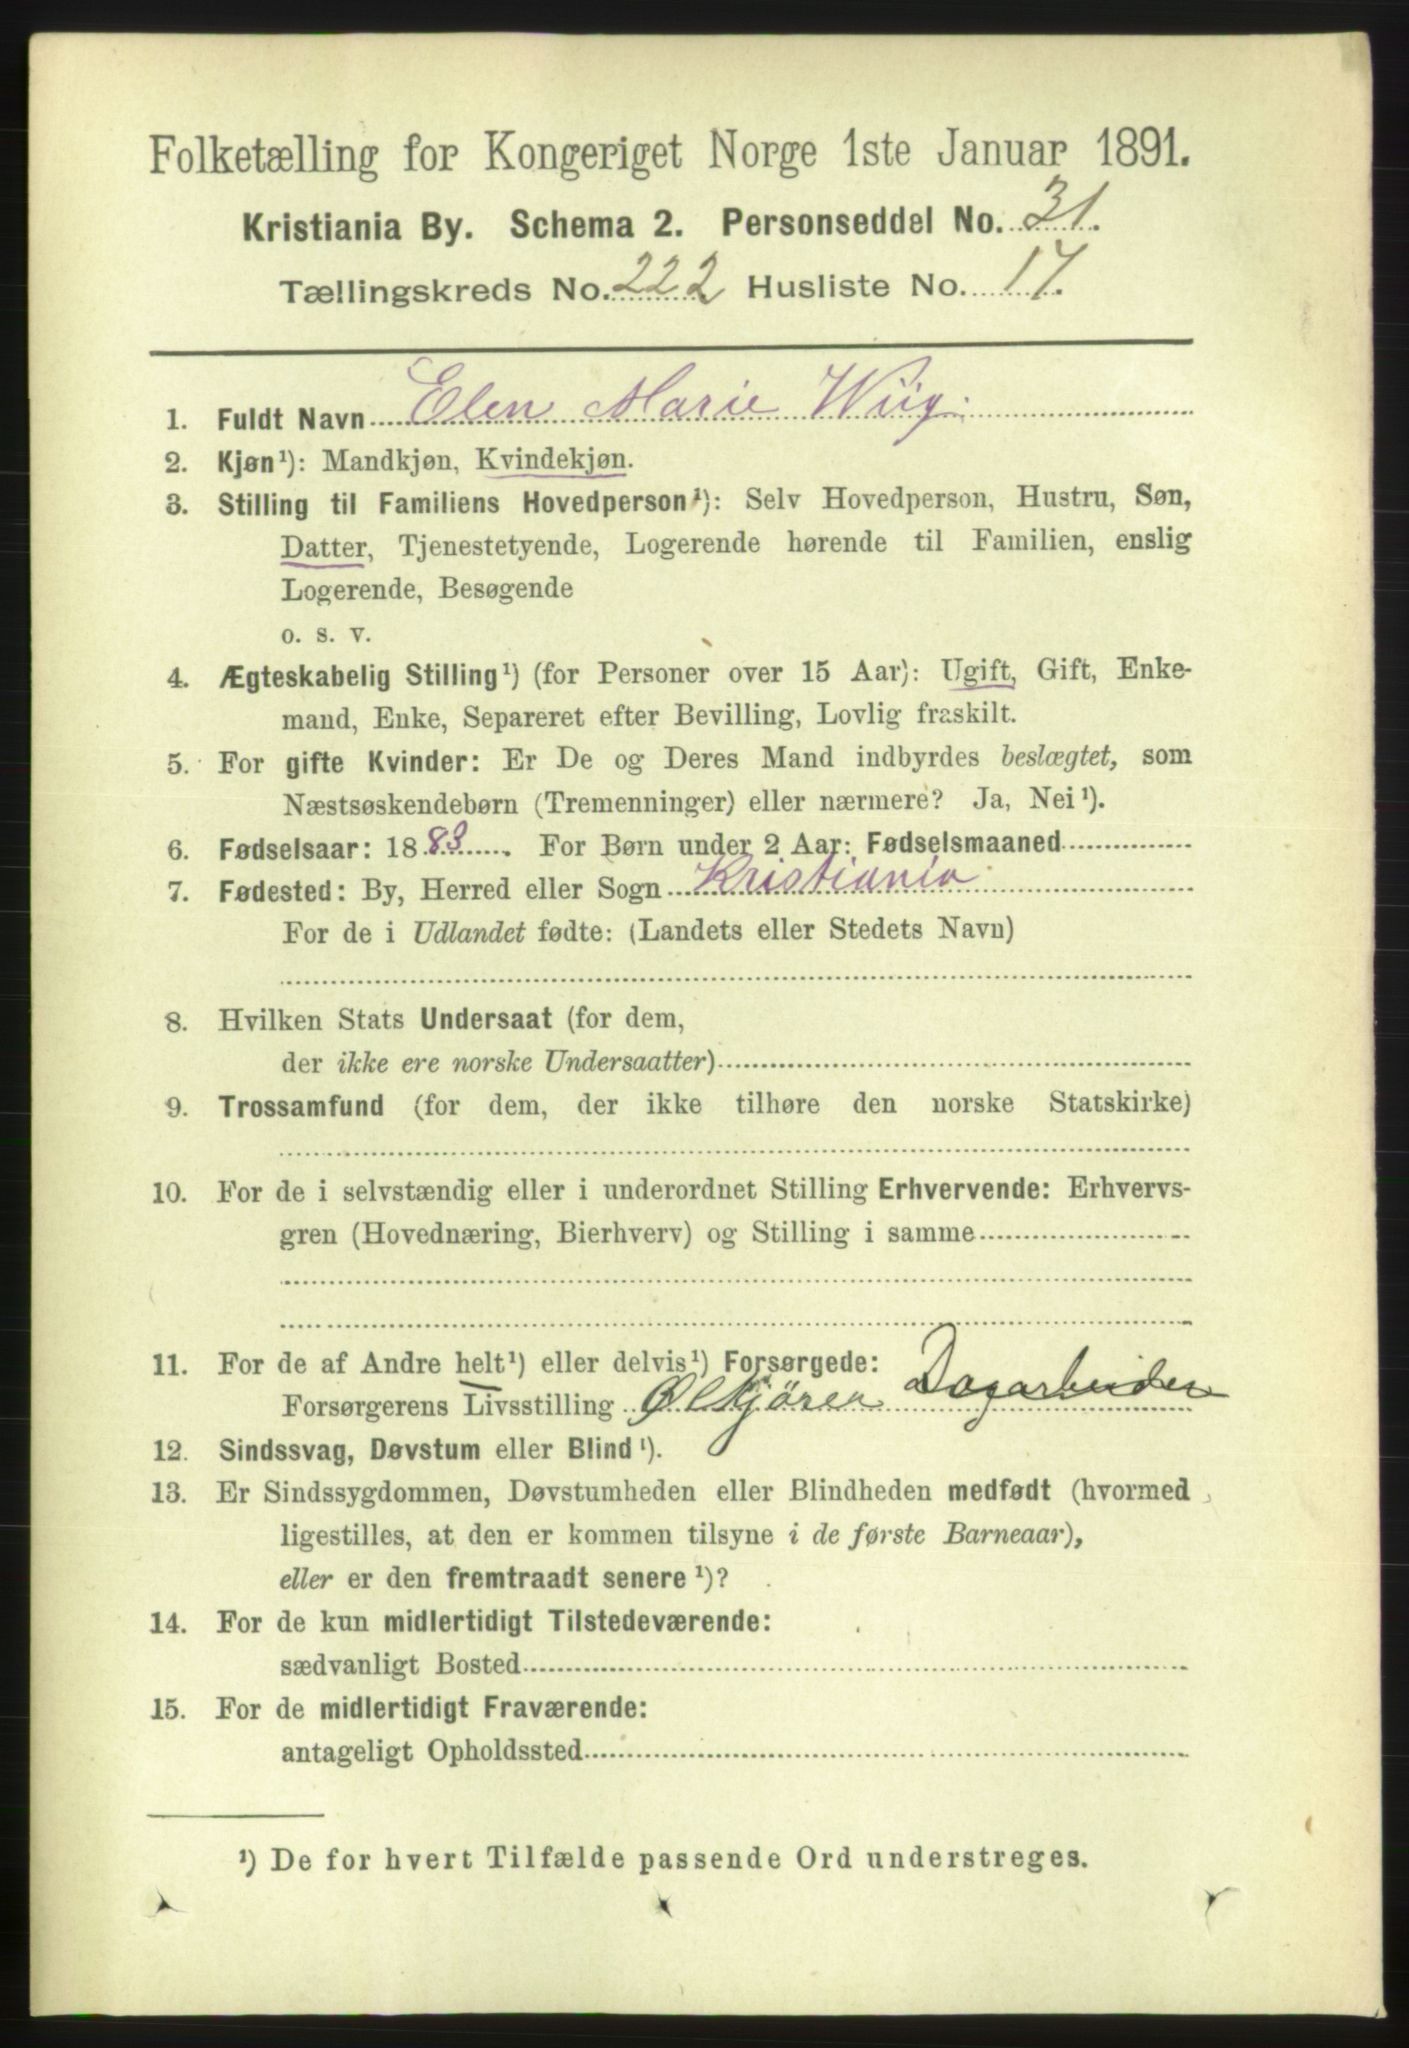 Folketælling for Kongeriget Norge 1ste Januar 1891.
Kristiania By. Schema 2. Personseddel No. 31.
Tællingskreds No. 222 Husliste No. 17.
1. Fuldt Navn Elen Marie Wiig.
2. Kjøn¹): Mandkjøn, Kvindekjøn.
3. Stilling til Familiens Hovedperson¹): Selv Hovedperson, Hustru, Søn,
Datter, Tjenestetyende, Logerende hørende til Familien, enslig
Logerende, Besøgende
o. s. v.
4. Ægteskabelig Stilling¹) (for Personer over 15 Aar): Ugift, Gift, Enke-
mand, Enke, Separeret efter Bevilling, Lovlig fraskilt.
5. For gifte Kvinder: Er De og Deres Mand indbyrdes beslægtet, som
Næstsøskendebørn (Tremenninger) eller nærmere? Ja, Nei¹).
6. Fødselsaar: 1883. For Børn under 2 Aar: Fødselsmaaned
7. Fødested: By, Herred eller Sogn Kristiania
For de i Udlandet fødte: (Landets eller Stedets Navn)
8. Hvilken Stats Undersaat (for dem,
der ikke ere norske Undersaatter)
9. Trossamfund (for dem, der ikke tilhøre den norske Statskirke)
10. For de i selvstændig eller i underordnet Stilling Erhvervende: Erhvervs-
gren (Hovednæring, Bierhverv) og Stilling i samme
11. For de af Andre helt¹) eller delvis¹) Forsørgede:
Forsørgerens Livsstilling Ølkjörer Dagarbeider
12. Sindssvag, Døvstum eller Blind¹).
13. Er Sindssygdommen, Døvstumheden eller Blindheden medfødt (hvormed
ligestilles, at den er kommen tilsyne i de første Barneaar),
eller er den fremtraadt senere¹)?
14. For de kun midlertidigt Tilstedeværende:
sædvanligt Bosted
15. For de midlertidigt Fraværende:
antageligt Opholdssted
¹) De for hvert Tilfælde passende Ord understreges.